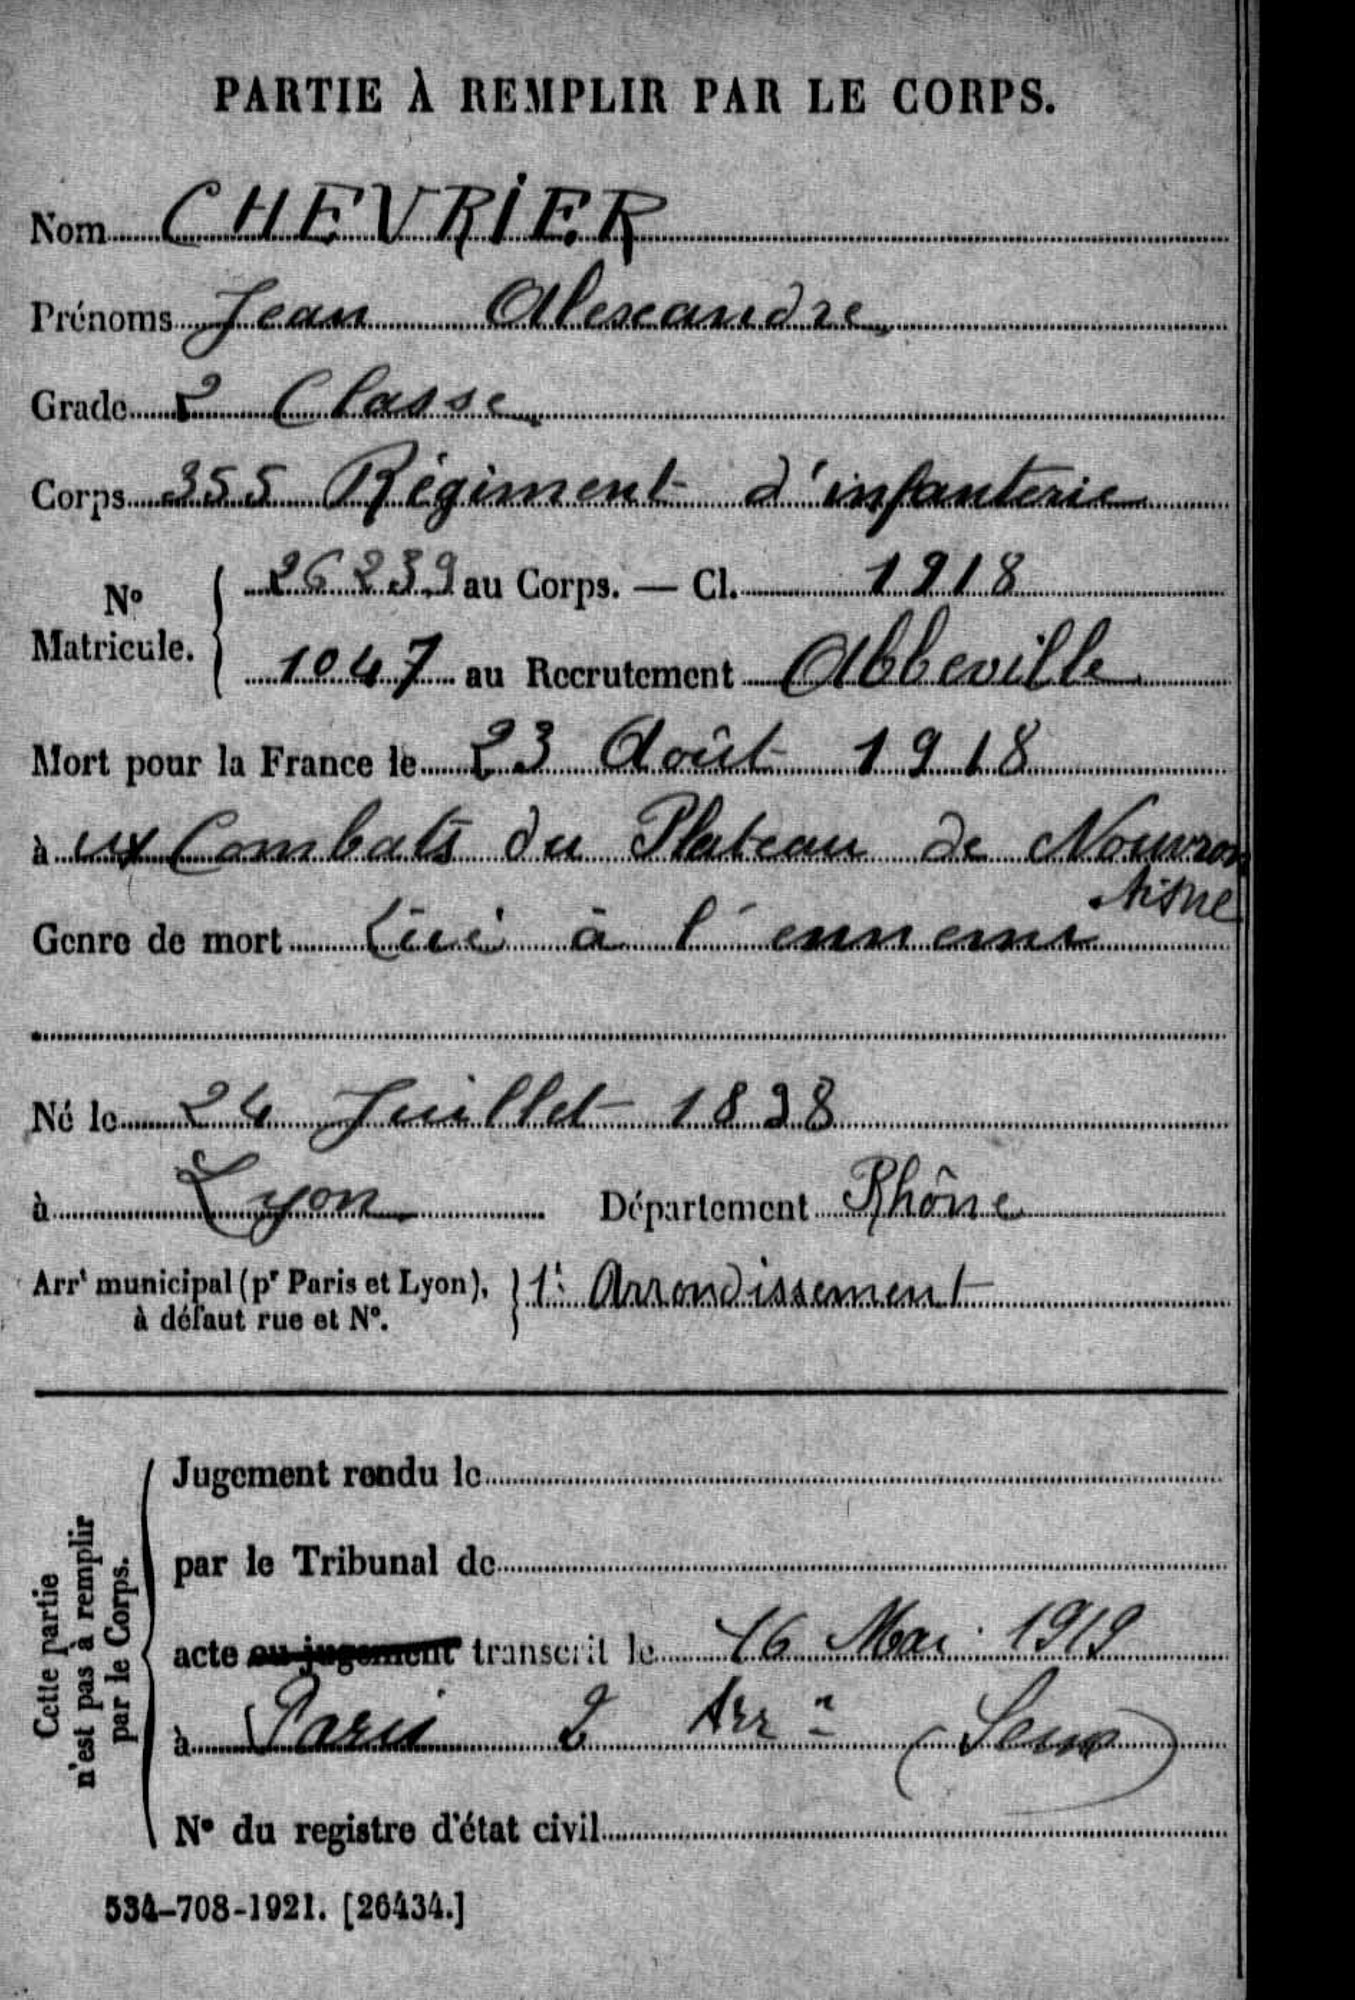 PARTIE À REMPLIR PAR LE CORPS.
Nom CHEVRIER
Prénoms Jean Alexandre
Grade 2 Classe
Corps 355 Régiment d'infanterie
No Matricule. { 26239 au Corps. — Cl. 1918
1047 au Recrutement Abbeville
Mort pour la France le 23 Août 1918
à ux Combats du Plateau de Nouvron
Aisne
Genre de mort Tué à l'ennemi
Né le 24 Juillet 1898
à Lyon Département Rhône
Arrt municipal (pr Paris et Lyon), à défaut rue et No. } 1er Arrondissement
Cette partie n'est pas à remplir par le Corps.
Jugement rendu le
par le Tribunal de
acte ou jugement transcrit le 16 Mai 1919
à Paris 2 Arrt (Seine)
No du registre d'état civil
534-708-1921. [26434.]